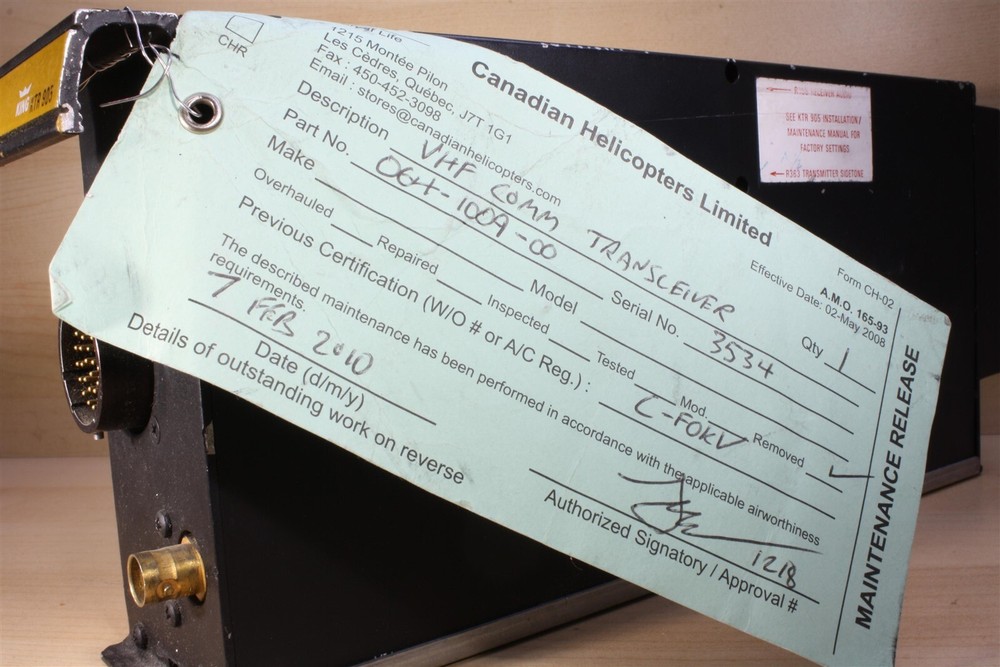 KING KTR 905
CHR
al Life
1215 Montée Pilon
Les Cèdres, Québec, J7T 1G1
Fax : 450-452-3098
Email : stores@canadianhelicopters.com
Canadian Helicopters Limited
Form CH-02
A.M.O. 165-93
Effective Date: 02-May 2008
Description VHF COMM TRANSCEIVER Qty 1
Part No. 064-1009-00 Serial No. 3534
Make Model
Overhauled Repaired Inspected Tested Mod. Removed ✓
Previous Certification (W/O # or A/C Reg.) : C-FOKV
The described maintenance has been performed in accordance with the applicable airworthiness
requirements.
7 FEB 2010
Date (d/m/y)
1218
Authorized Signatory / Approval #
Details of outstanding work on reverse
MAINTENANCE RELEASE
RECEIVER AUDIO
SEE KTR 905 INSTALLATION/
MAINTENANCE MANUAL FOR
FACTORY SETTINGS
R383 TRANSMITTER SIDETONE